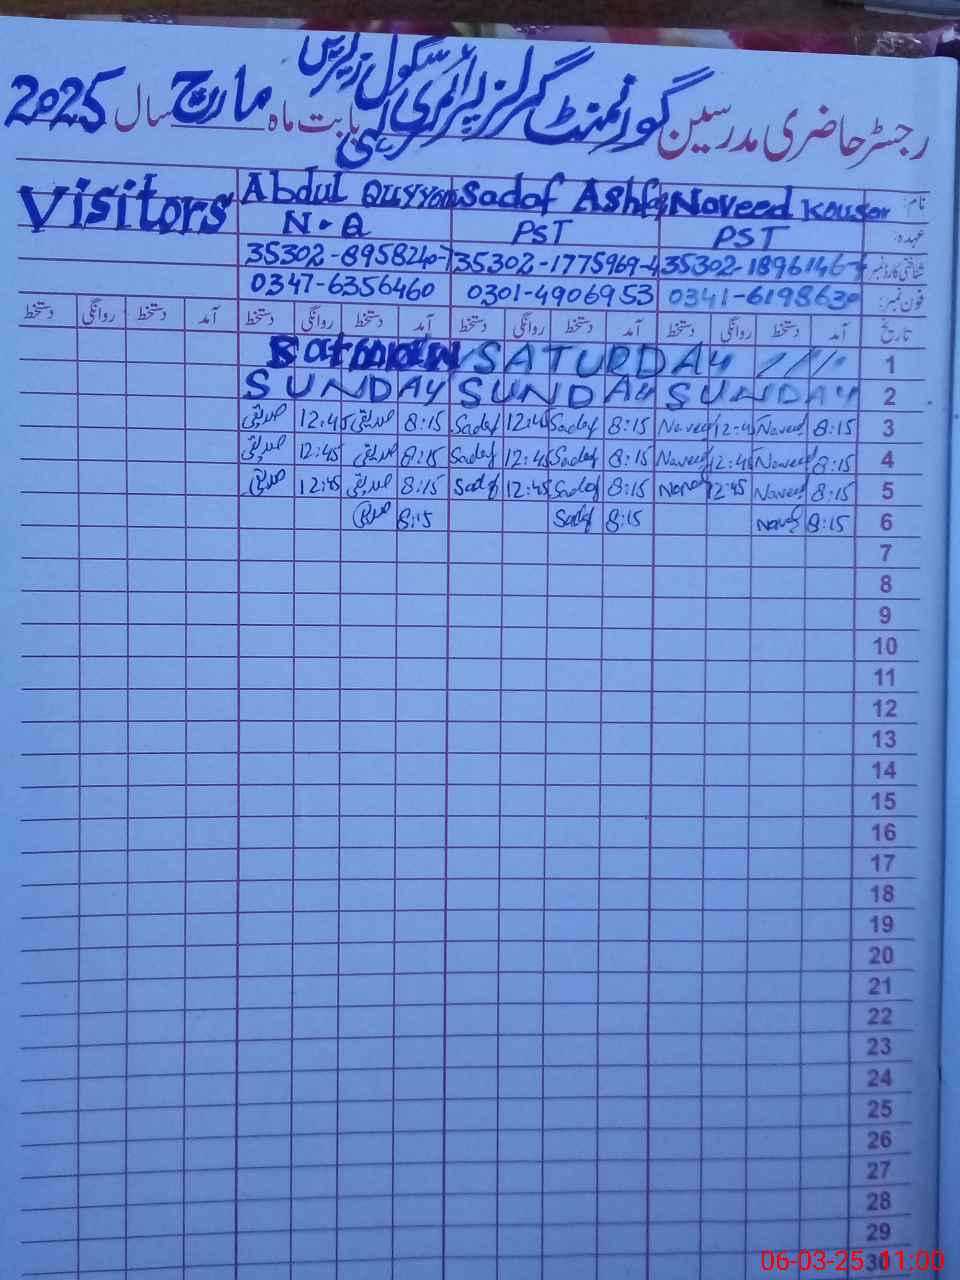 رجسٹر حاضری مدرسین گورنمنٹ گرلز پرائمری سکول بابت ماہ مارچ سال 2025
نام: Naveed Kousar Sadaf Ashfaq Abdul Quyyam Visitors
عہدہ: PST PST N.Q
شناختی کارڈ نمبر 35302-1775969-4 35302-8958240-7
فون نمبر: 0341-6198630 0301-4906953 0347-6356460
تاریخ آمد دستخط روانگی دستخط آمد دستخط روانگی دستخط آمد دستخط روانگی دستخط آمد دستخط روانگی دستخط
1 SATURDAY
2 SUNDAY SUNDAY SUNDAY
3 8:15 Naveed 12:45 Naveed 8:15 Sadaf 12:45 Sadaf 8:15 12:45
4 8:15 Naveed 12:45 Naveed 8:15 Sadaf 12:45 Sadaf 8:15 12:45
5 8:15 Naveed 12:45 8:15 Sadaf 12:45 Sadaf 8:15 12:45
6 8:15 8:15 Sadaf 8:15
7
8
9
10
11
12
13
14
15
16
17
18
19
20
21
22
23
24
25
26
27
28
29
30
06-03-25 11:00